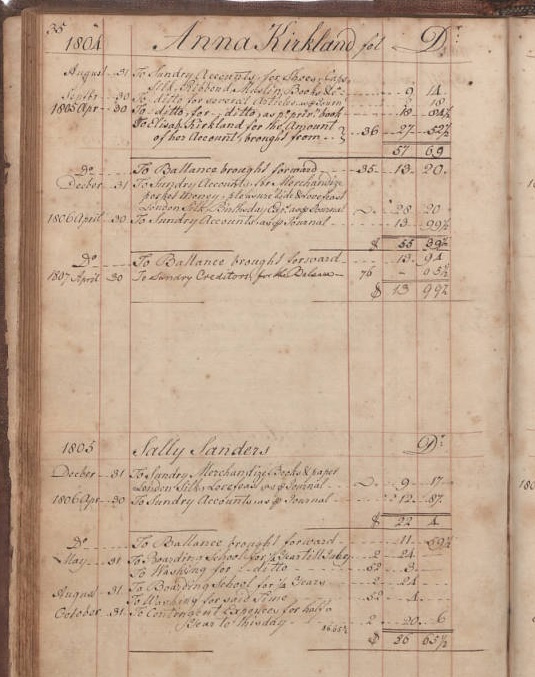 36
1804 Anna Kirkland fol Dr
August 31 To Sundry Accounts, for Shoes, Cap,
Silk, Ribbond Muslin, Books &c 9 14
Septbr 30 To ditto for several Articles, as 18
1805 Apr 30 To ditto, for ditto, as book 19 84½
To Elisab. Kirkland for the Amount
of her Account, brought from 36 27 52½
57 69
Do To Ballance brought forward 35 13 20
Decber 31 To Sundry Accounts, for Merchandize
pocket Money, pleasure ride & Lovefeast
London Silk, Birthday as Journal D 28 20
1806 April 30 To Sundry Accounts, as Journal 13 99½
$ 55 39½
Do To Ballance brought forward 13 94
1807 April 30 To Sundry Creditors, for the Balance 76 - 05½
$ 13 99½
1805 Sally Sanders Dr
Decber 31 To Sundry Merchandize Books & paper
London Silk, Lovefeast, as Journal D 9 17
1806 Apr 30 To Sundry Accounts, as Journal 12 87
$ 22 4
Do To Ballance brought forward 11 59½
May 31 To Boarding School for ¼ Year till 2 24
To Washing for ditto 52 3
August 31 To Boarding School for ¼ Years 2 24
To Washing for said Time 52 4
October 31 To Contingent Expences for half a
Year to this day 2 20 6
$ 36 65½